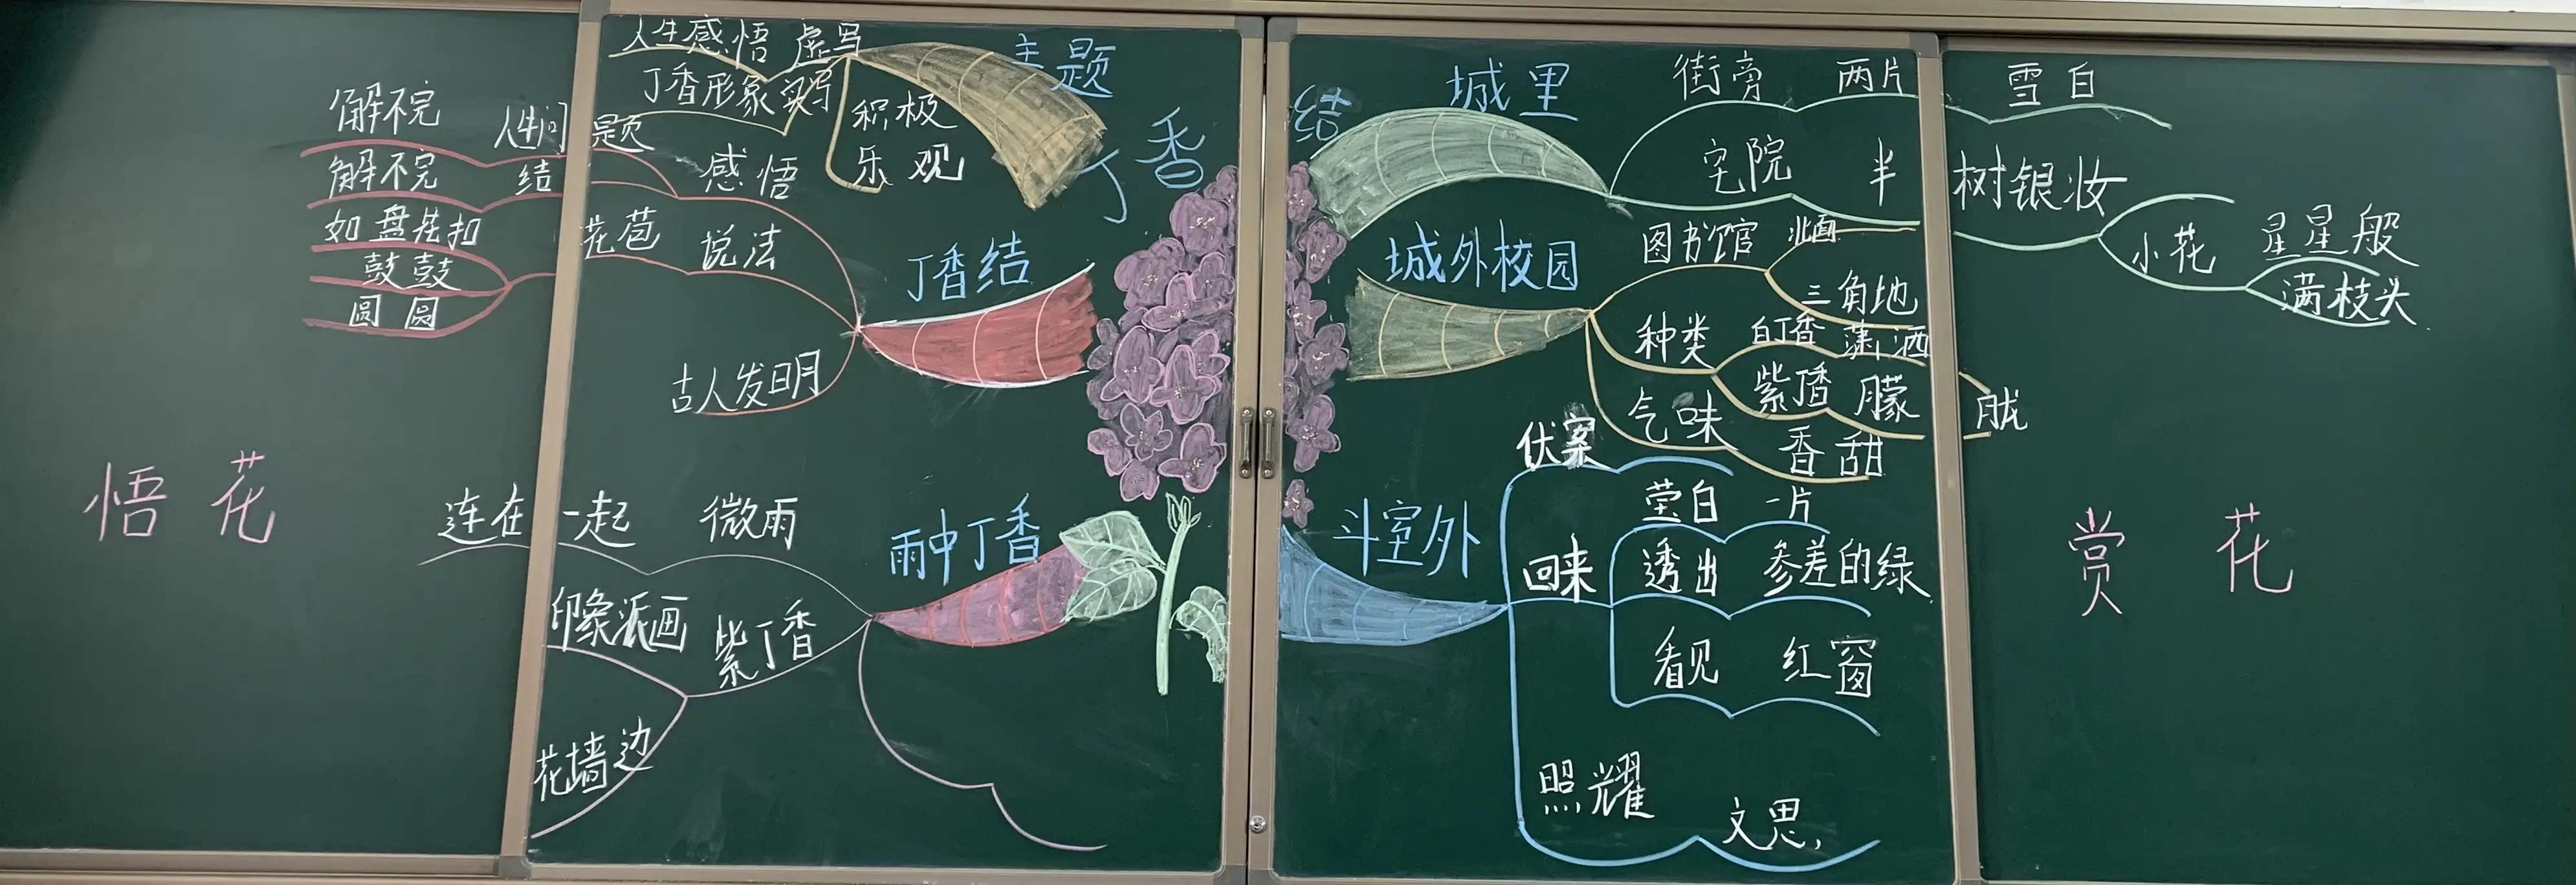 人生感悟 虚写
丁香形象 实写
积极
乐观
主题
丁香
结
解不完 人生问题
解不完 结
感悟
如盘花扣
鼓鼓
圆圆
花苞 说法
古人发明
丁香结
悟花
连在一起 微雨
印象派画 紫丁香
花墙边
雨中丁香
城里
街旁 两片 雪白
宅院 半树银妆
小花 星星般
满枝头
城外校园
图书馆 北面
三角地
种类 白丁香 潇洒
紫丁香 朦胧
气味 香甜
斗室外
伏案
回来
莹白 一片
透出 参差的绿
看见 红窗
照耀 文思,
赏花